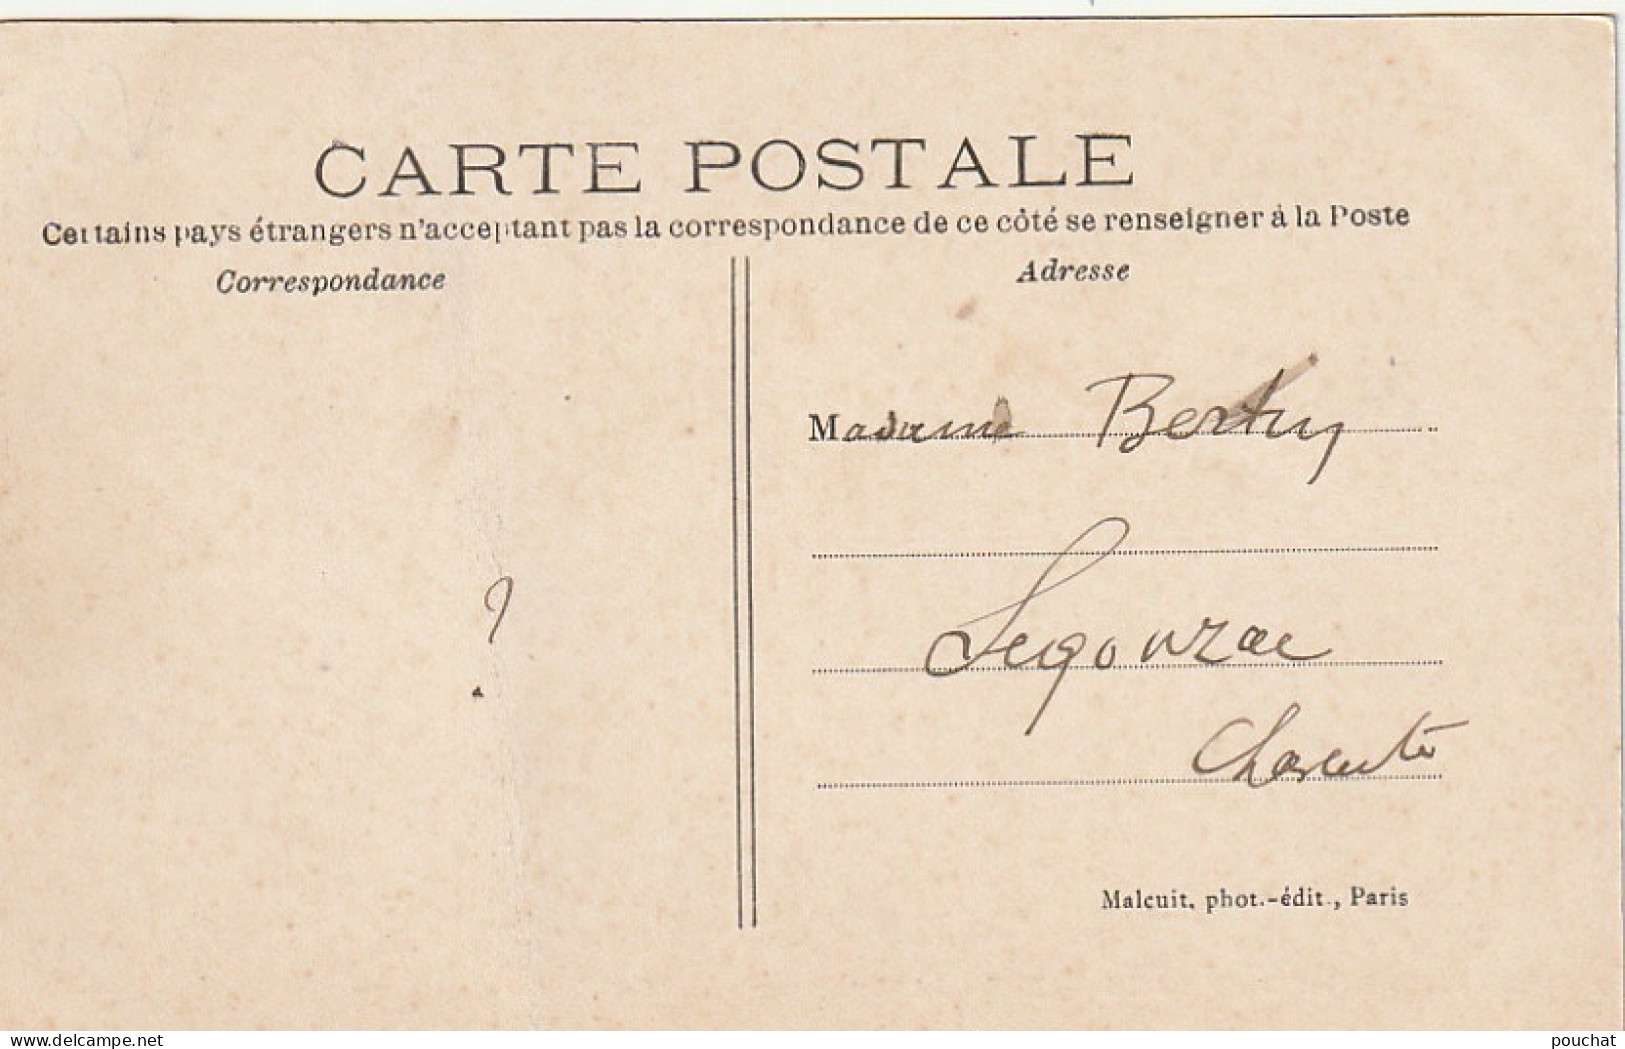 CARTE POSTALE
Certains pays étrangers n'acceptant pas la correspondance de ce côté se renseigner à la Poste
Correspondance
Adresse
Madame
?
Segonzac
Charente
Malcuit, phot.-édit., Paris
delcampe.net
pouchat